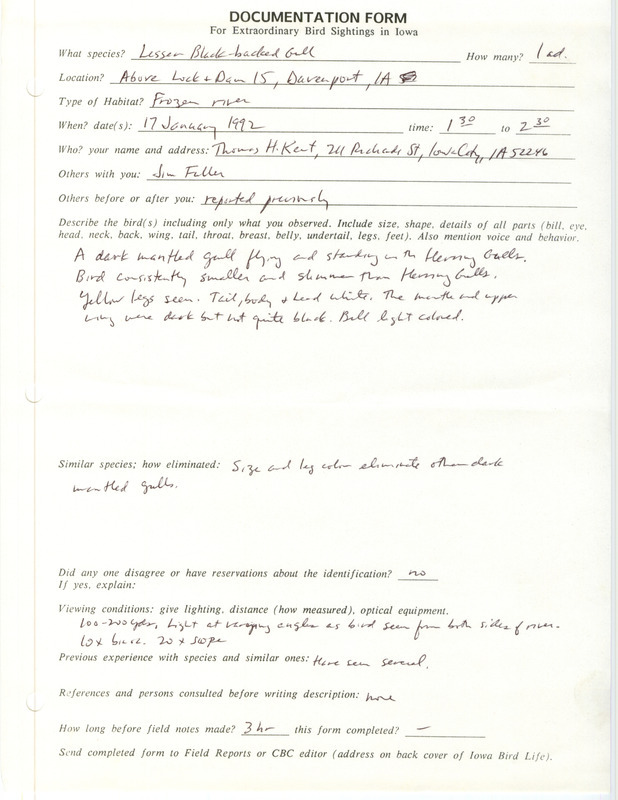 DOCUMENTATION FORM
For Extraordinary Bird Sightings in Iowa
What species? Lesser Black-backed Gull How many? 1 ad.
Location? Above Lock + Dam 15, Davenport, IA
Type of Habitat? Frozen river
When? date(s): 17 January 1992 time: 1 30 to 2 30
Who? your name and address: Thomas H. Kent, 211 Richards St, Iowa City, IA 52246
Others with you: Jim Fuller
Others before or after you: reported previously
Describe the bird(s) including only what you observed. Include size, shape, details of all parts (bill, eye,
head, neck, back, wing, tail, throat, breast, belly, undertail, legs, feet). Also mention voice and behavior.
A dark mantled gull flying and standing with Herring Gulls.
Bird consistently smaller and slimmer than Herring Gulls.
Yellow legs seen. Tail, body + head white. The mantle and upper
wing were dark but not quite black. Bill light colored.
Similar species; how eliminated: Size and leg color eliminate other dark
mantled gulls.
Did any one disagree or have reservations about the identification? no
If yes, explain:
Viewing conditions: give lighting, distance (how measured), optical equipment.
100-200 yds, light at varying angles as bird seen from both sides of river.
10x binoc. 20x scope
Previous experience with species and similar ones: Have seen several.
References and persons consulted before writing description: none
How long before field notes made? 3 hr this form completed? —
Send completed form to Field Reports or CBC editor (address on back cover of Iowa Bird Life).